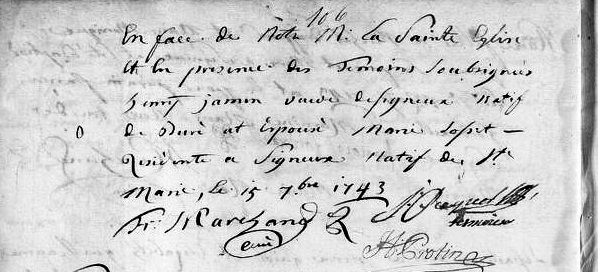 106
En face de Notre M: La Sainte Eglise
Et En presence des Temoins Soubsignés
henry jamin vueve de signeux Natif
de at Epousé Marie Joset —
Residente a Signeux Natif de Ste
Marie, Le 15 7bre 1743
fr: Marchand
curé
temoin
H Protin